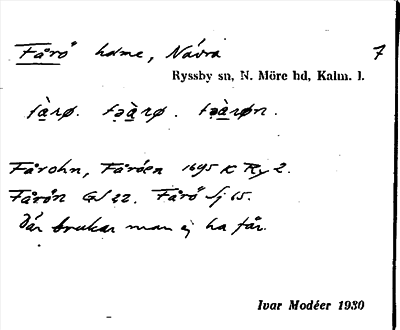 Fårö holme, Návra 7
Ryssby sn, N. Möre hd, Kalm. l.
fàrø. fəàrø. fəàrøn.
Fårohn, Fåröen 1695 K Ry 2.
Fårön GS 22. Fårö Sj 65.
Där brukar man ej ha får.
Ivar Modéer 1930